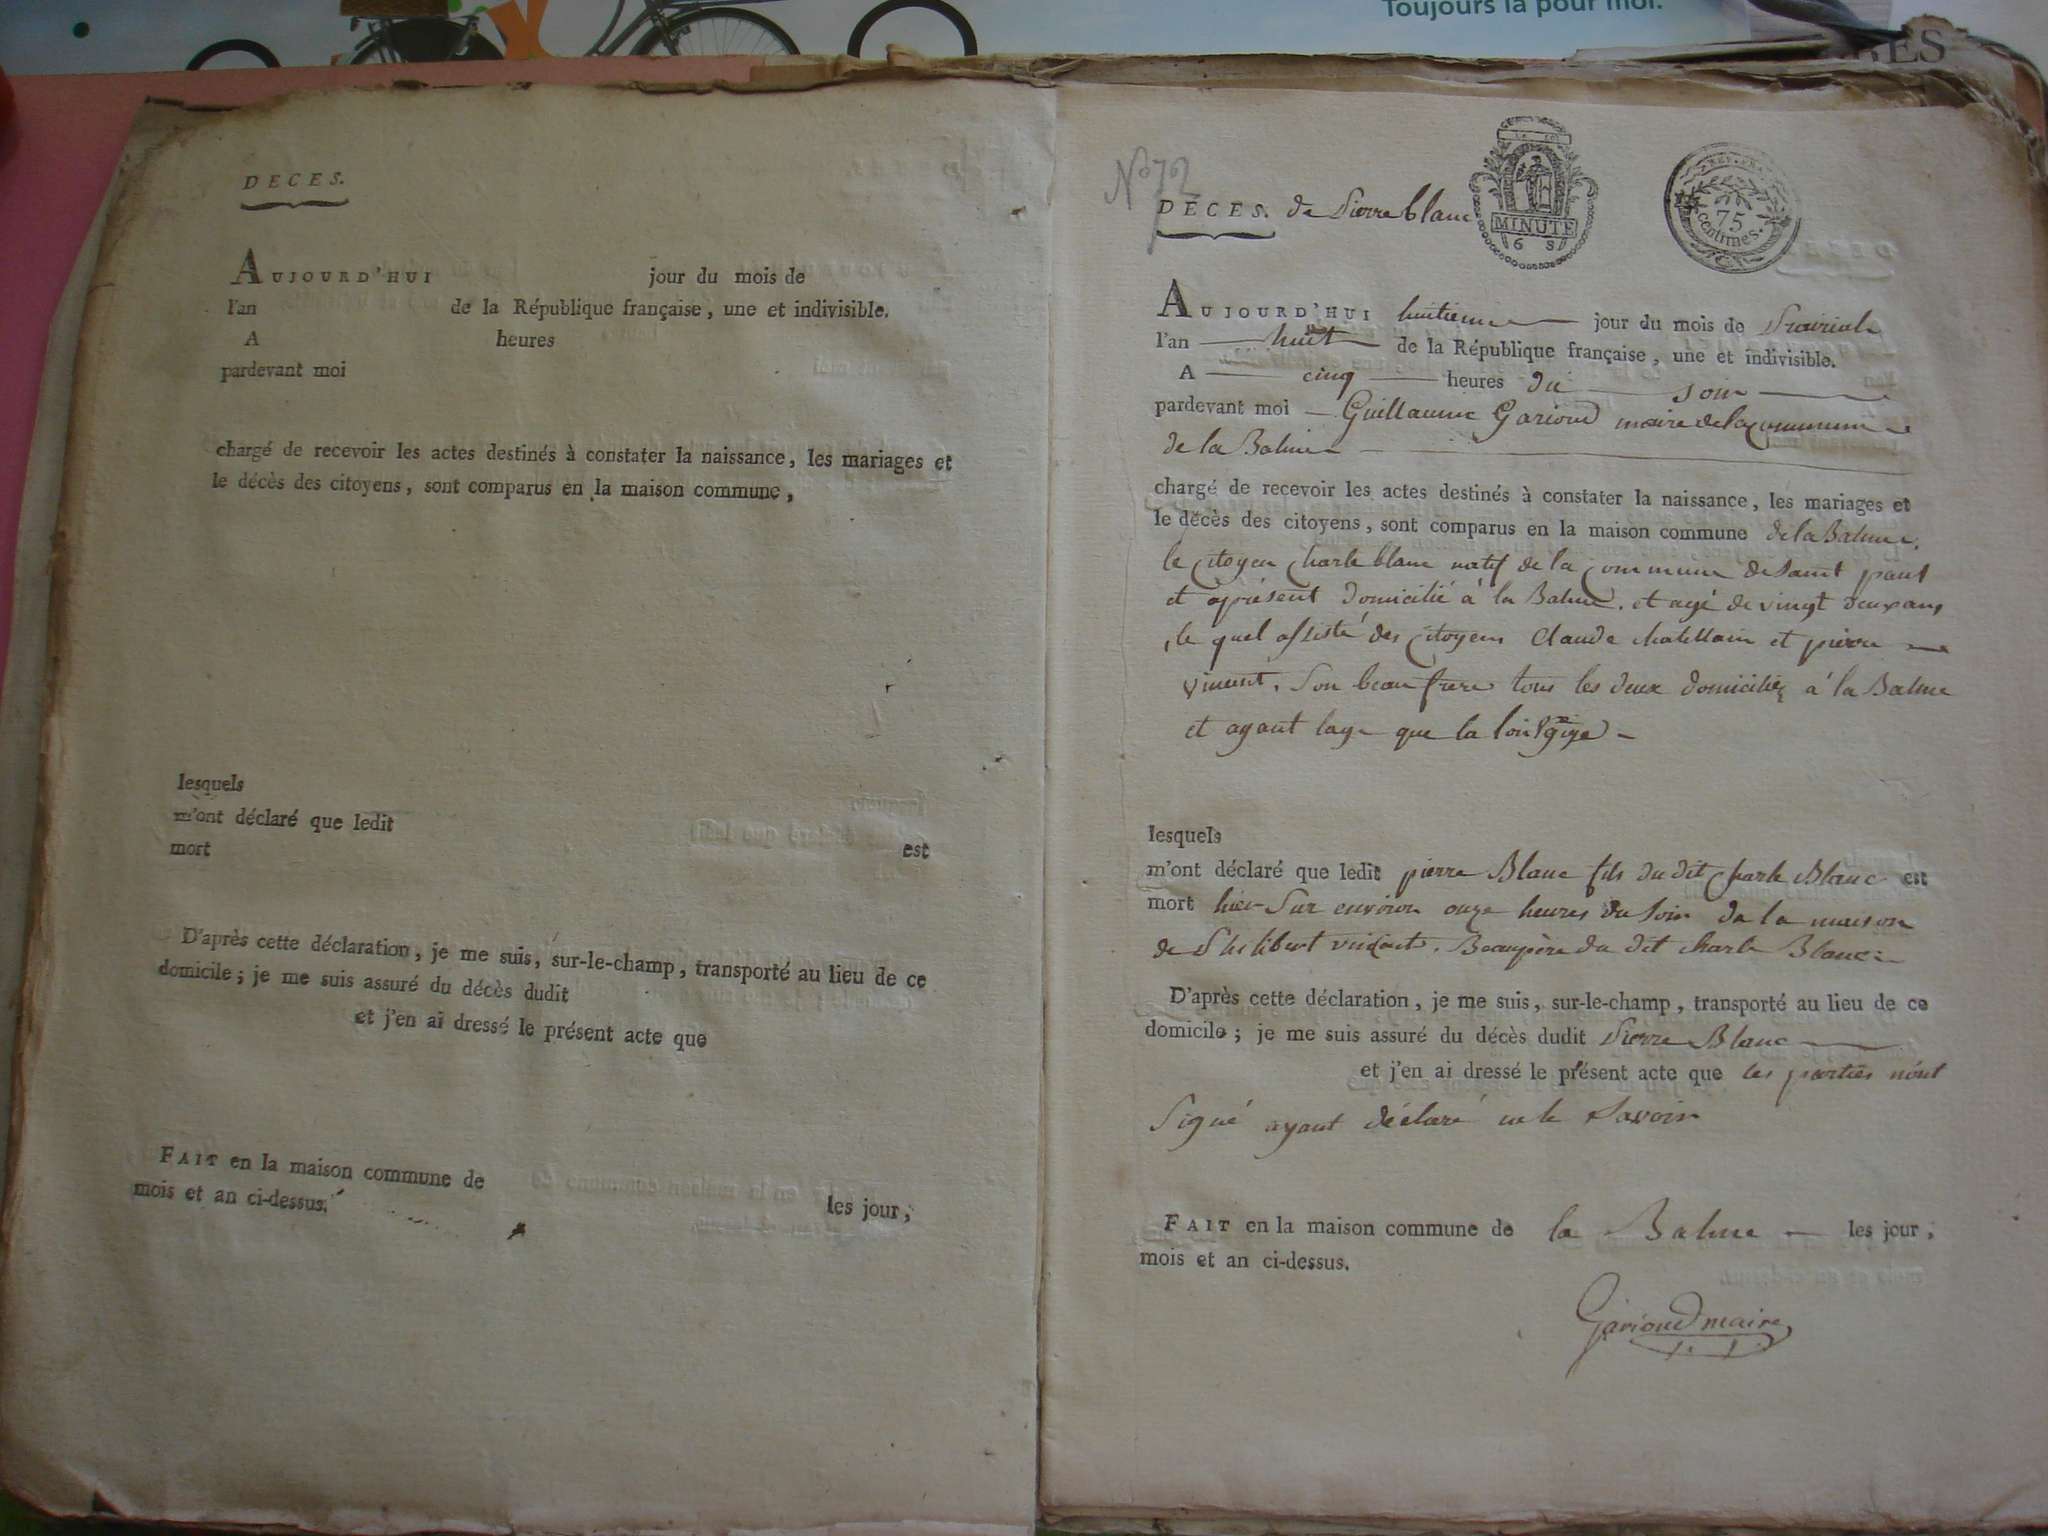 Toujours là pour moi.
GES
DECES.
AUJOURD'HUI jour du mois de
l'an de la République française, une et indivisible.
A heures
pardevant moi
chargé de recevoir les actes destinés à constater la naissance, les mariages et
le décès des citoyens, sont comparus en la maison commune,
lesquels
m'ont déclaré que ledit
mort est
D'après cette déclaration, je me suis, sur-le-champ, transporté au lieu de ce
domicile; je me suis assuré du décès dudit
et j'en ai dressé le présent acte que
FAIT en la maison commune de les jour,
mois et an ci-dessus.
No 72
DÉCES. de Pierre blanc
MINUTE
6 S
75
centimes.
AUJOURD'HUI huitieme jour du mois de Prairial
l'an huit de la République française, une et indivisible.
A cinq heures du soir
pardevant moi Guillaume Garioud maire de la commune
de la Balme
chargé de recevoir les actes destinés à constater la naissance, les mariages et
le décès des citoyens, sont comparus en la maison commune de la Balme,
le Citoyen Charle blanc natif de la commune de saint paul
et aprésent domicilié à la Balme, et agé de vingt deux ans
le quel assisté des Citoyens Claude chatellain et pierre
vincent, son beau frere tous les deux domiciliez à la Balme
et ayant lage que la loi
lesquels
m'ont déclaré que ledit pierre Blanc fils du dit Charle Blanc est
mort hier sur environ onze heures du soir de la maison
de Philibert vincent, Beaupère du dit charle Blanc
D'après cette déclaration, je me suis, sur-le-champ, transporté au lieu de ce
domicile; je me suis assuré du décès dudit Pierre Blanc
et j'en ai dressé le présent acte que les parties n'ont
Signé ayant déclaré ne le Savoir
FAIT en la maison commune de la Balme les jour,
mois et an ci-dessus.
Garioud maire